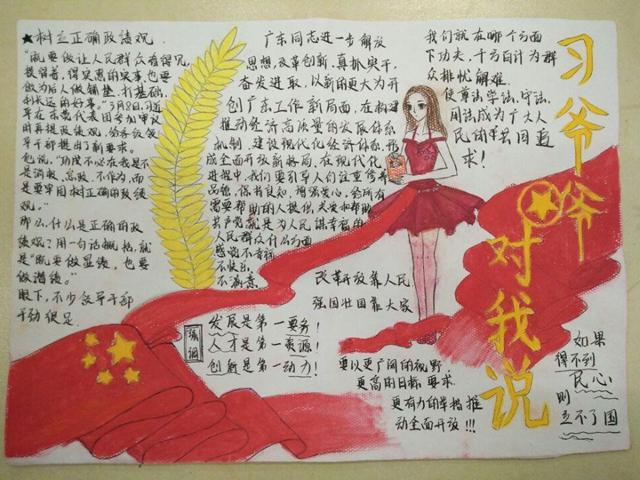 ★树立正确政绩观
"既要做让人民群众看得见、
摸得着、得实惠的实事,也要
做为后人做铺垫、打基础、
利长远的好事。"3月8日,习近
平在山东代表团参加审议
时再提政绩观,给各级领
导干部提出了新要求。
他说,"功成不必在我是不
是消极、怠政、不作为,而
是要牢固树立正确的政绩
观。"
那么,什么是正确的政
绩观?用一句话概括,就
是"既要做显绩,也要
做潜绩。"
眼下,不少领导干部
干劲很足
广东同志进一步解放
思想,改革创新,真抓实干,
奋发进取,以新的更大为开
创广东工作新局面,在构建
推动经济高质量的发展体系
机制、建设现代化经济体系、形
成全面开放新格局,在现代化
进程中,我们要引导人们注重修养
品德,保书良知,增强爱心,给所有
需要帮助的人提供关爱和帮助
去步党就是为人民谋幸福的,
人民群众什么方面
感觉不幸福
不快乐
不满意
我们就在哪个方面
下功夫,千方百计为群
众排忧解难
使尊法学法、守法
用法成为广大人
民的共同追
求!
习爷爷
对我说
改革开放靠人民
强国壮国靠大家
发展是第一要务!
人才是第一资源!
创新是第一动力!
要以更广阔的视野
更高的目标要求
更有力的举措推
动全面开放!!!
如果
得不到
民心
则
立不了国